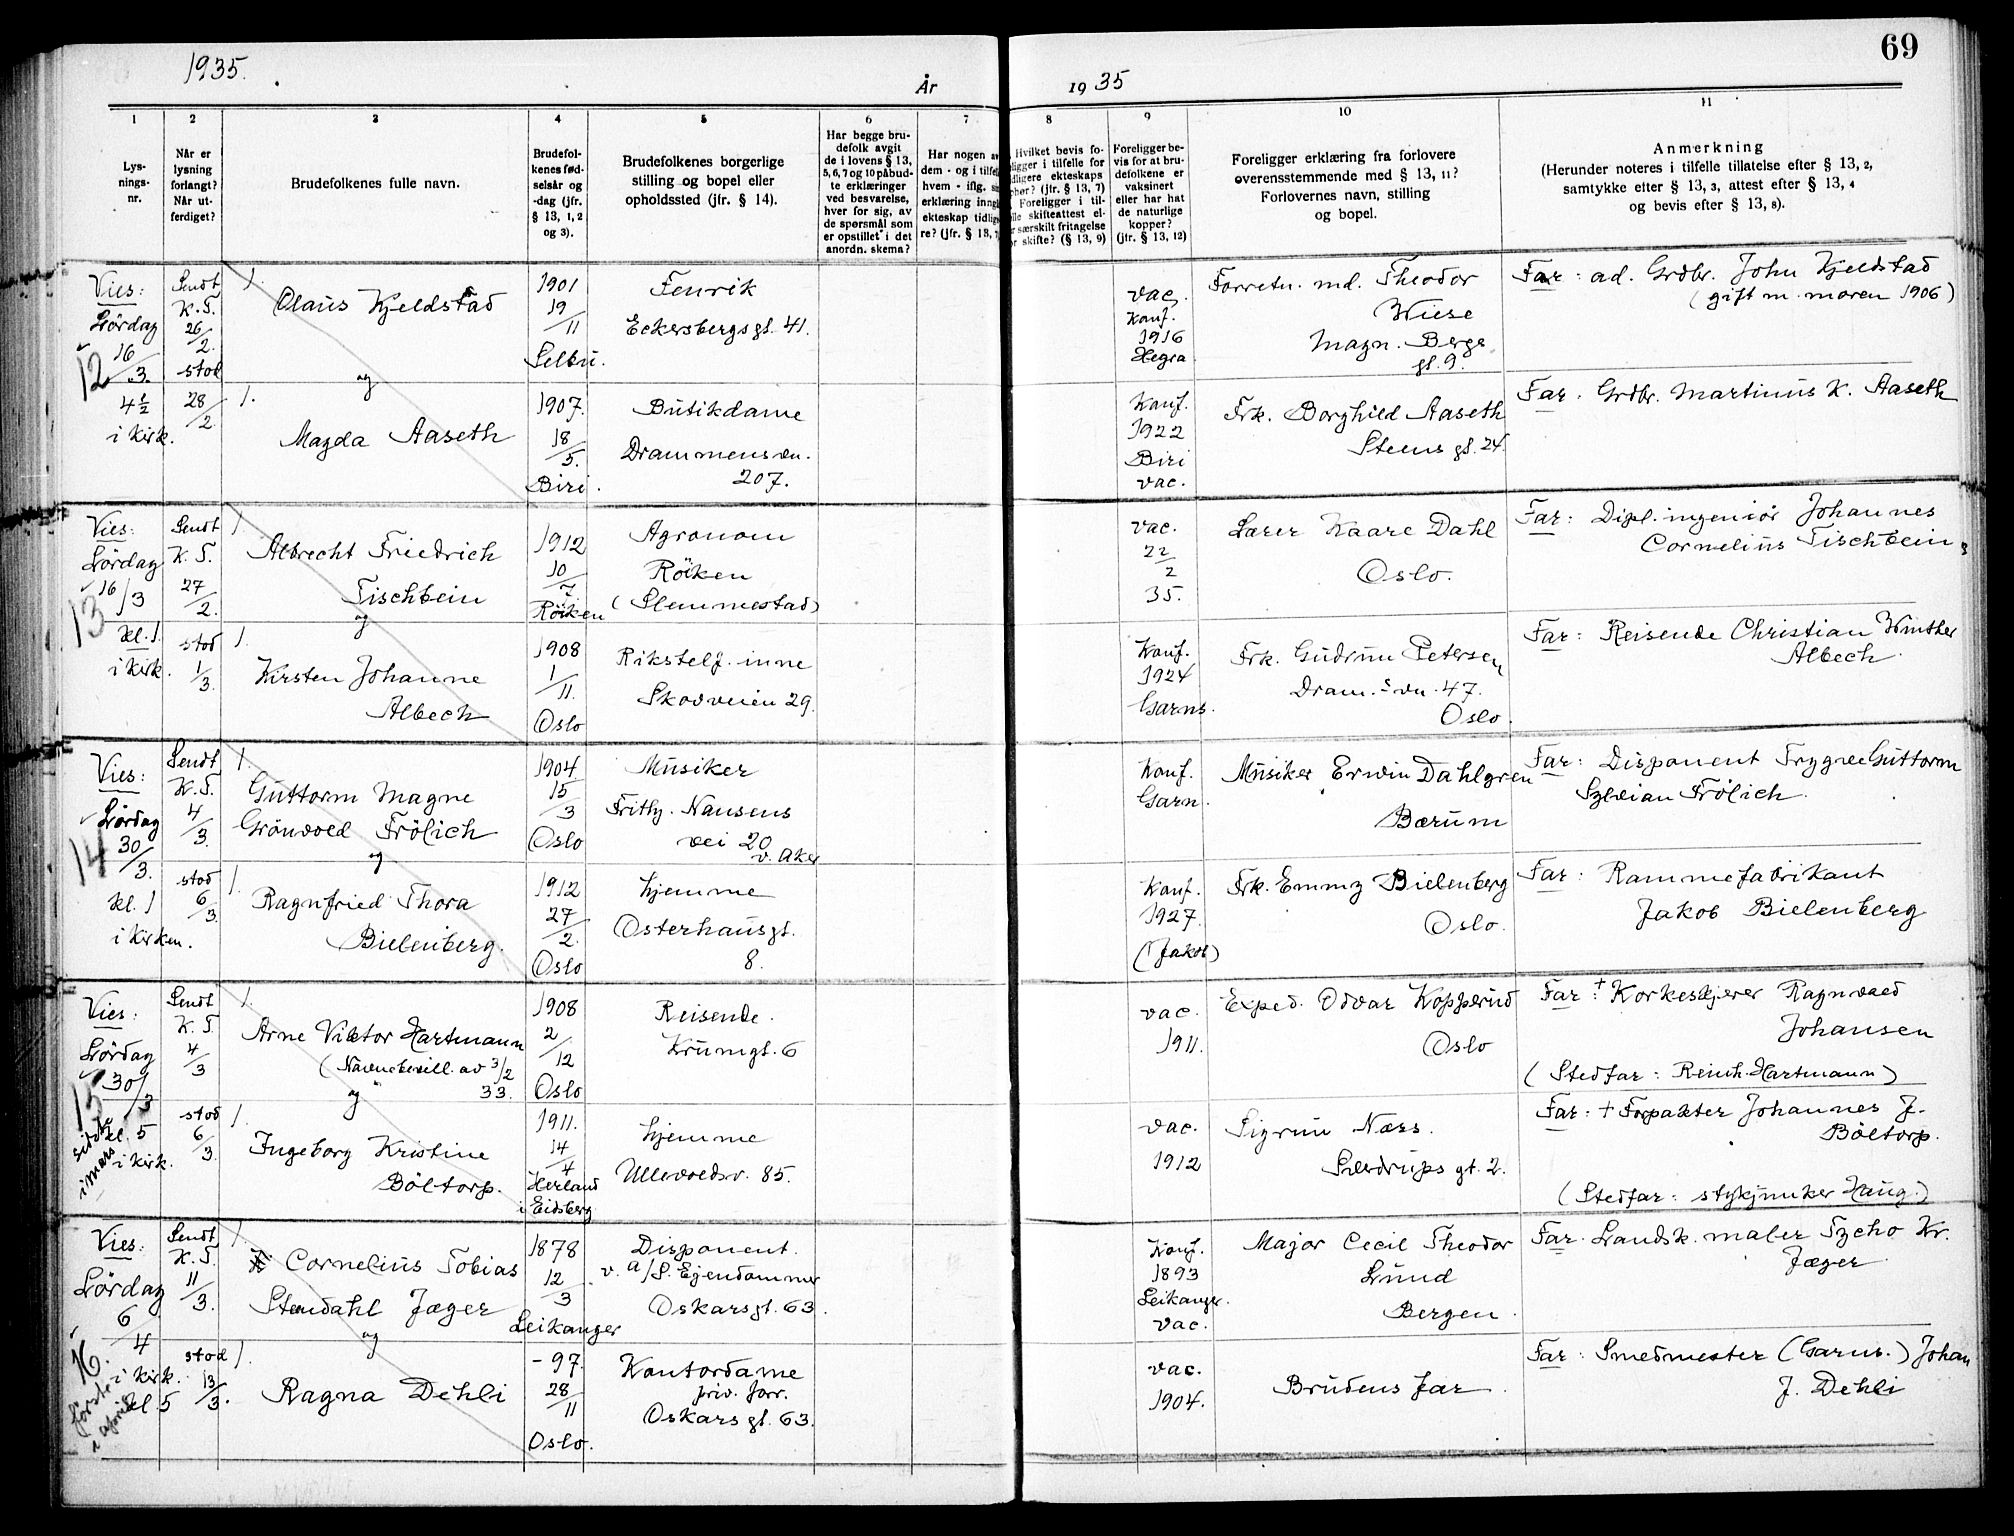 69
1935.
År
19 35
1
Lys-
nings-
nr.
2
Når er
lysning
forlangt?
Når ut-
ferdiget?
3
Brudefolkenes fulle navn.
4
Brudefol-
kenes fød-
selsår og
-dag (jfr.
§ 13, 1, 2
og 3).
5
Brudefolkenes borgerlige
stilling og bopel eller
opholdssted (jfr. § 14).
6
Har begge bru-
defolk avgit
de i lovens § 13,
5, 6, 7 og 10 påbud-
te erklæringer
ved besvarelse,
hver for sig, av
de spørsmål som
er opstillet i det
anordn. skema?
7
Har nogen a
dem - og i tilfel
hvem - iflg. s
erklæring inng
ekteskap tidlig
re? (jfr. § 13, 7
8
Hvilket bevis fo-
ligger i tilfelle for
dligere ekteskaps
hør? (jfr. § 13, 7)
Foreligger i til-
lle skifteattest el-
r særskilt fritagelse
or skifte? (§ 13, 9)
9
Foreligger be-
vis for at bru-
defolkene er
vaksinert
eller har hat
de naturlige
kopper?
(jfr. § 13, 12)
10
Foreligger erklæring fra forlovere
overensstemmende med § 13, 11?
Forlovernes navn, stilling
og bopel.
11
Anmerkning
(Herunder noteres i tilfelle tillatelse efter § 13, 2,
samtykke efter § 13, 3, attest efter § 13, 4
og bevis efter § 13, 8).
12
Vies:
Lördag
16/3.
4½
i Kirk.
Sendt
K.T.
26/2.
stod
28/2
1.
Olaus Kjeldstad
og
1.
Magda Aaseth
1901
19/11
Selbu.
1907.
18/5.
Biri.
Fenrik
Eckersbergs gt. 41.
Butikdame
Drammensvn.
207.
vac.
Konf.
1916
Hegra
Konf.
1922
Biri
vac.
Forretn. md. Theodor
Wiese
Magn. Bergs
gt. 9.
Frk. Borghild Aaseth
Steens gt. 24.
Far: ad. Grdbr. John Kjeldstad
(gift m. moren 1906)
Far. Grdbr. Martinus K. Aaseth
13
Vies:
Lördag
16/3
kl. 1.
i Kirk.
Sendt
K.T.
27/2.
stod
1/3.
1.
Albrecht Friedrich
Tischbein
og
1.
Kirsten Johanne
Albech
1912
10/7
Röiken
1908
1/11.
Oslo
Agronom
Röiken
(Slemmestad)
Rikstelf. inne
Skovveien 29.
vac.
22/2
35.
Konf.
1924
Garns.
Lærer Kaare Dahl
Oslo.
Frk. Gudrun Petersen
Dram.s vn. 47.
Oslo.
Far: Dipl. ingeniör Johannes
Cornelius Tischbein
Far: Reisende Christian Winther
Albech
14
Vies:
Lördag
30/3.
kl. 1
i Kirken.
Sendt
K.T.
4/3.
stod
6/3.
1.
Guttorm Magne
Grönvold Frölich
og
1.
Ragnfried Thora
Bielenberg.
1904
15/3
Oslo
1912
27/2.
Oslo
Musiker
Frithj. Nansens
vei 20
v. Aker
hjemme
Osterhausgt.
8.
Konf.
Garn.
Konf.
1927.
(Jakob)
Musiker Erwin Dahlgren
Bærum
Frk. Emmy Bielenberg
Oslo.
Far: Disponent Trygve Guttorm
Sylvian Frölich.
Far: Rammefabrikant
Jakob Bielenberg
15
Vies:
Lördag
30/3
kl. 5
i Kirk.
siste
i mars
Sendt
K.T.
4/3
stod
6/3.
1.
Arne Viktor Hartmann
(Navnebevill. av 3/2
33.
og
1.
Ingeborg Kristine
Böltorp.
1908
2/12
Oslo
1911.
14/4
Herland
i Eidsberg
Reisende.
Krumgt. 6
hjemme
Ullevoldsv. 85.
vac.
1911.
vac.
1912
Exped. Odvar Kopperud
Oslo
Sigrun Næss.
Sverdrups gt. 2.
Far: † Korkeskjerer Ragnvald
Johansen
(Stedfar: Reinh. Hartmann)
Far: † Forpakter Johannes J.
Böltorp.
(Stedfar: stykjunker Haug.)
16.
Vies:
Lördag
6/4
i Kirk.
kl. 5
förste
i april
Sendt
K.T.
11/3.
stod
13/3.
1.
Cornelius Tobias
Stendahl Jæger
og
1.
Ragna Dehli
1878
12/3
Leikanger
-97.
28/11
Oslo.
Disponent.
v. A/S. Ejendommer
Oskarsgt. 63.
Kontordame
priv. forr.
Oskars gt. 63.
Konf.
1893
Leikanger.
vac.
vac.
1904.
Major Cecil Theodor
Lund
Bergen.
Brudens far.
Far. Landsk. maler Tycho Kr.
Jæger.
Far: Smedmester (Garns.) Johan
J. Dehli